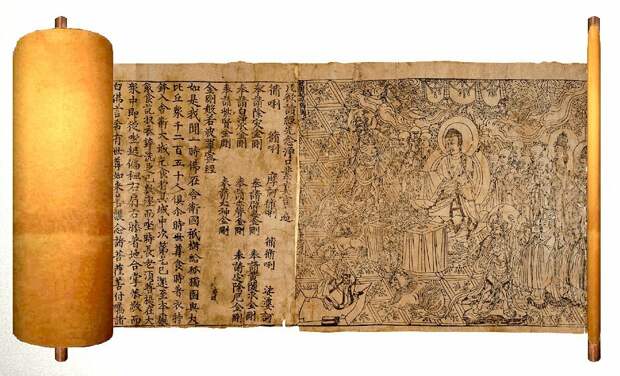 凡欲讀經先念淨口業真言一遍
脩唎 脩唎 摩訶脩唎 脩脩唎 娑婆訶
奉請除災金剛 奉請辟毒金剛 奉請黃隨求金剛
奉請白淨水金剛 奉請赤聲金剛 奉請定除厄金剛
奉請紫賢金剛 奉請大神金剛
金剛般若波羅蜜經
如是我聞一時佛在舍衛國祇樹給孤獨園與大
比丘眾千二百五十人俱爾時世尊食時著衣持
鉢入舍衛大城乞食於其城中次第乞已還至本處
飯食訖收衣鉢洗足已敷座而坐時長老須菩提在大
眾中即從座起偏袒右肩右膝著地合掌恭敬而
白佛言希有世尊如來善護念諸菩薩善付囑諸